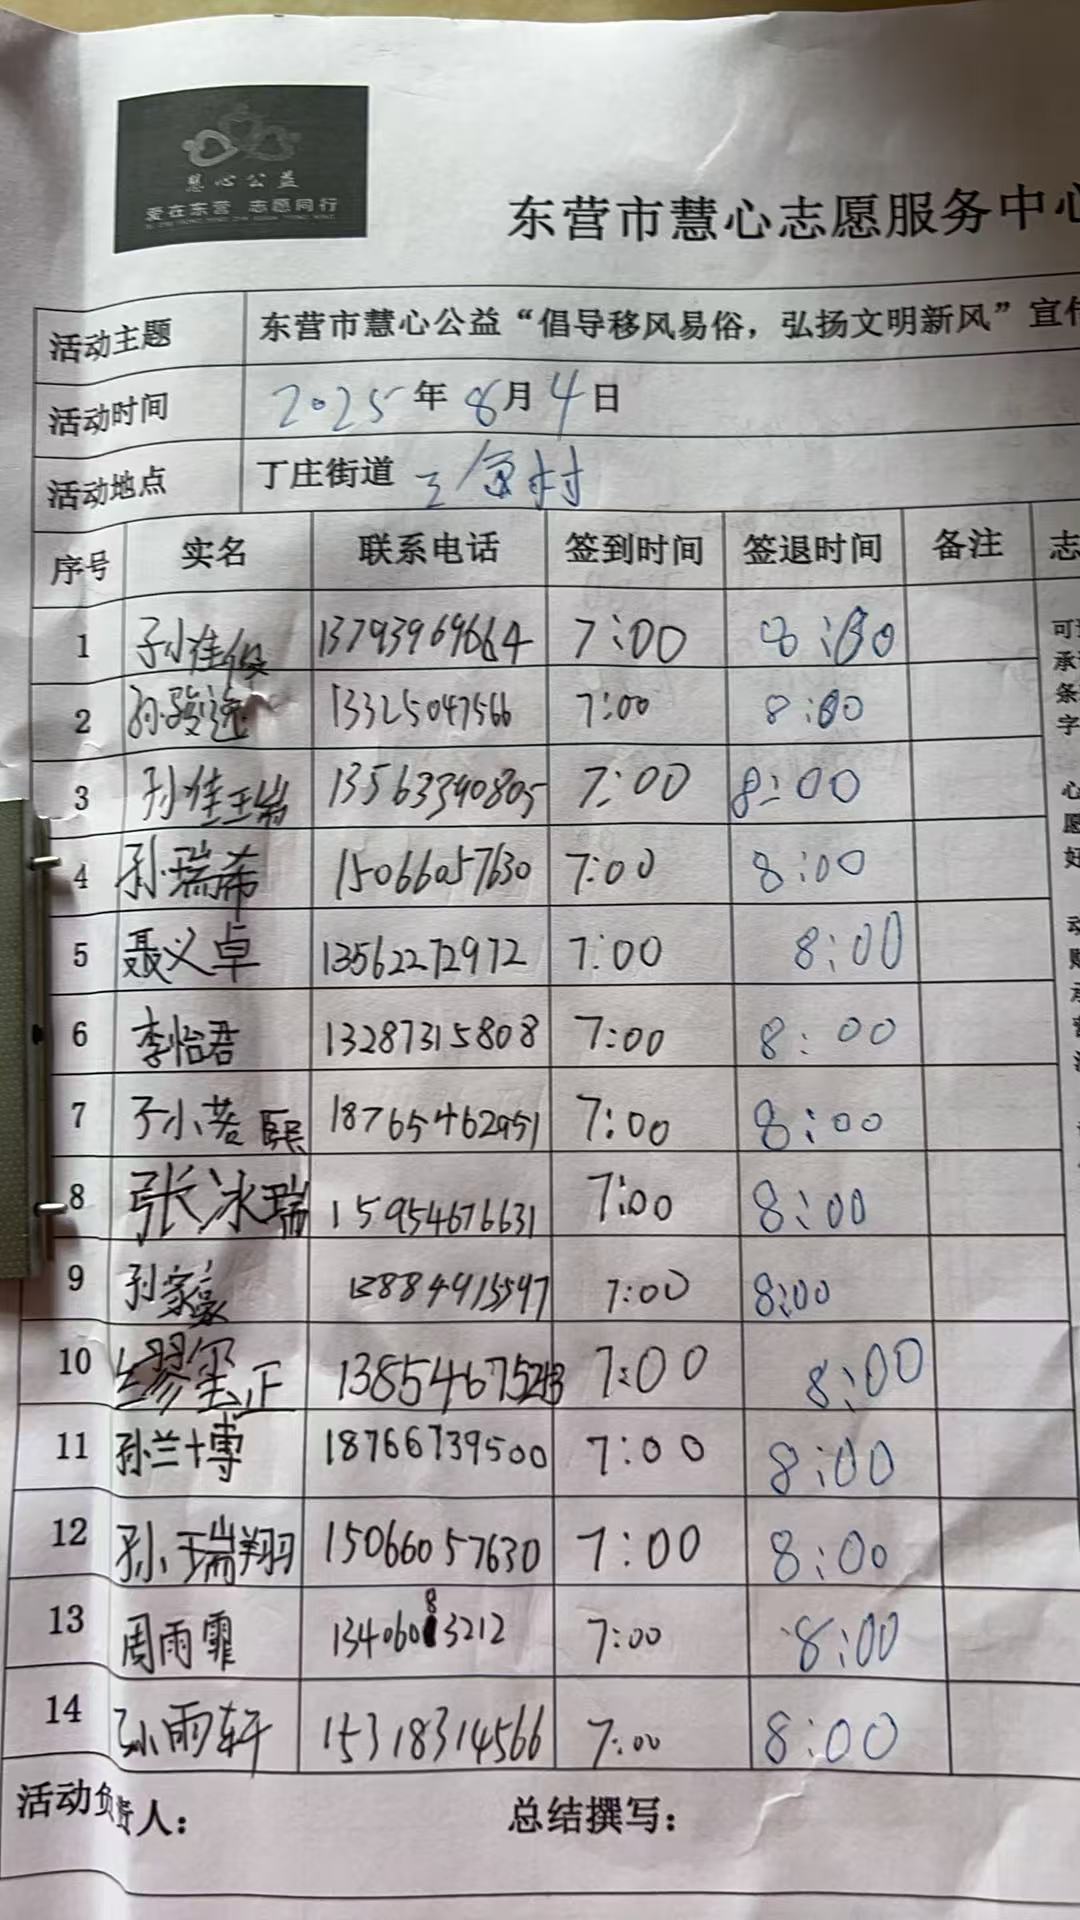 慧心公益
爱在东营 志愿同行
东营市慧心志愿服务中心
活动主题 东营市慧心公益“倡导移风易俗，弘扬文明新风”宣传
活动时间 2025年8月4日
活动地点 丁庄街道 王 村
序号 实名 联系电话 签到时间 签退时间 备注 志
1 孙佳俊 13793969664 7:00 8:00
2 孙骏逸 13325047566 7:00 8:00
3 孙佳瑞 13563340805 7:00 8:00
4 孙瑞希 15066057630 7:00 8:00
5 聂义卓 13562272972 7:00 8:00
6 李怡君 13287315808 7:00 8:00
7 孙若熙 18765462951 7:00 8:00
8 张冰瑞 15954676631 7:00 8:00
9 孙家豪 7:00 8:00
10 缪玺正 7:00 8:00
11 孙兰博 18766739500 7:00 8:00
12 孙瑞翔 15066057630 7:00 8:00
13 周雨霏 13406083212 7:00 8:00
14 孙雨轩 15318314566 7:00 8:00
可
承
条
字
心
愿
好
动
活动负责人： 总结撰写：